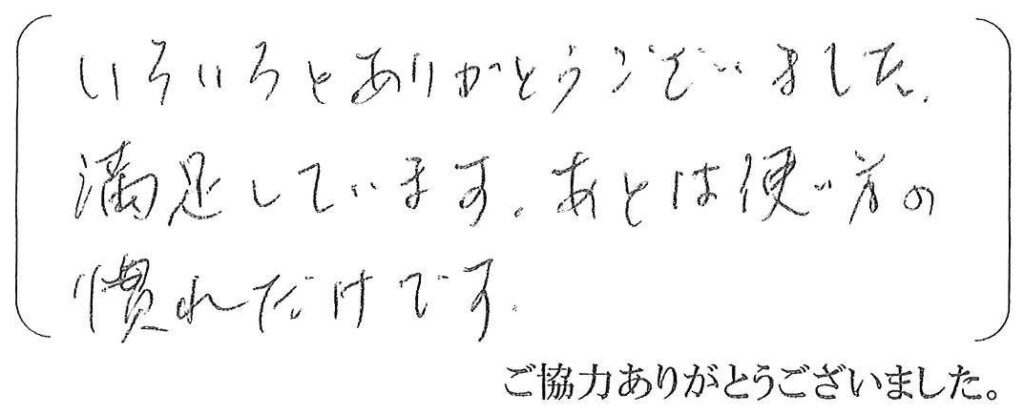 いろいろとありがとうございました。
満足しています。あとは使い方の
慣れだけです。
ご協力ありがとうございました。